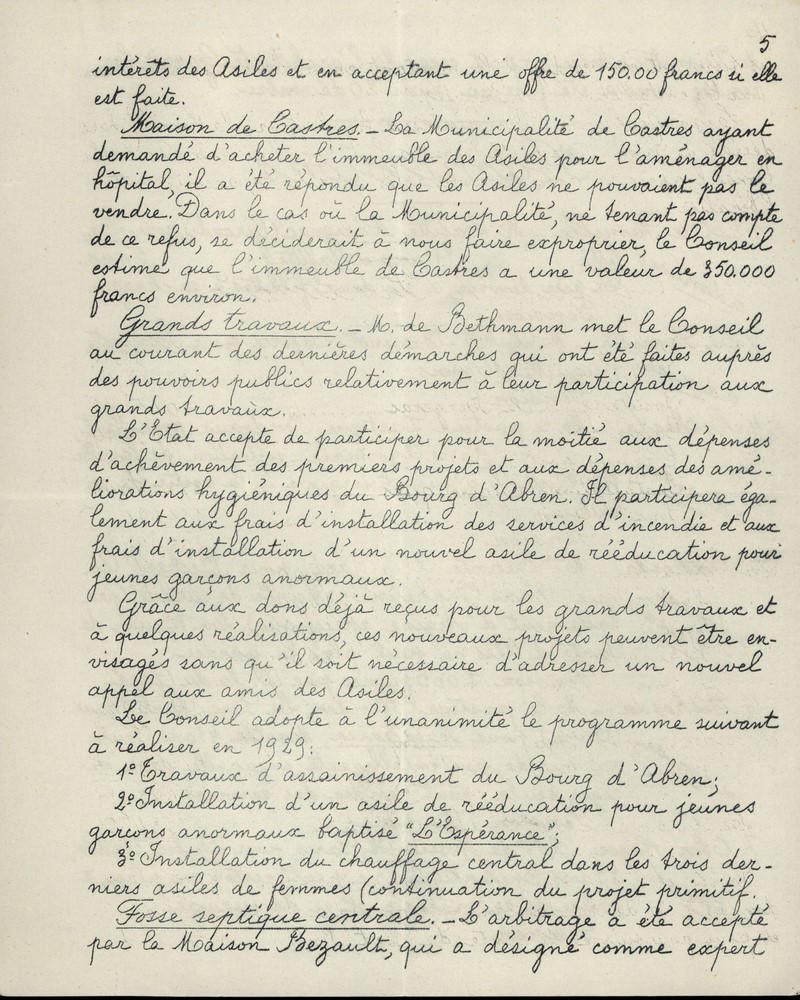 5
intérêts des Asiles et en acceptant une offre de 150.00 francs si elle
est faite.
Maison de Castres. – La Municipalité de Castres ayant
demandé d'acheter l'immeuble des Asiles pour l'aménager en
hôpital, il a été répondu que les Asiles ne pouvaient pas le
vendre. Dans le cas où la Municipalité, ne tenant pas compte
de ce refus, se déciderait à nous faire exproprier, le Conseil
estime que l'immeuble de Castres a une valeur de 350.000
francs environ.
Grands travaux. – M. de Bethmann met le Conseil
au courant des dernières démarches qui ont été faites auprès
des pouvoirs publics relativement à leur participation aux
grands travaux.
L'Etat accepte de participer pour la moitié aux dépenses
d'achèvement des premiers projets et aux dépenses des amé-
liorations hygiéniques du Bourg d'Abren. Il participera éga-
lement aux frais d'installation des services d'incendie et aux
frais d'installation d'un nouvel asile de rééducation pour
jeunes garçons anormaux.
Grâce aux dons déjà reçus pour les grands travaux et
à quelques réalisations, ces nouveaux projets peuvent être en-
visagés sans qu'il soit nécessaire d'adresser un nouvel
appel aux amis des Asiles.
Le Conseil adopte à l'unanimité le programme suivant
à réaliser en 1929:
1º Travaux d'assainissement du Bourg d'Abren;
2º Installation d'un asile de rééducation pour jeunes
garçons anormaux baptisé "L'Espérance";
3º Installation du chauffage central dans les trois der-
niers asiles de femmes (continuation du projet primitif.
Fosse septique centrale. – L'arbitrage a été accepté
par la Maison Bezault, qui a désigné comme expert